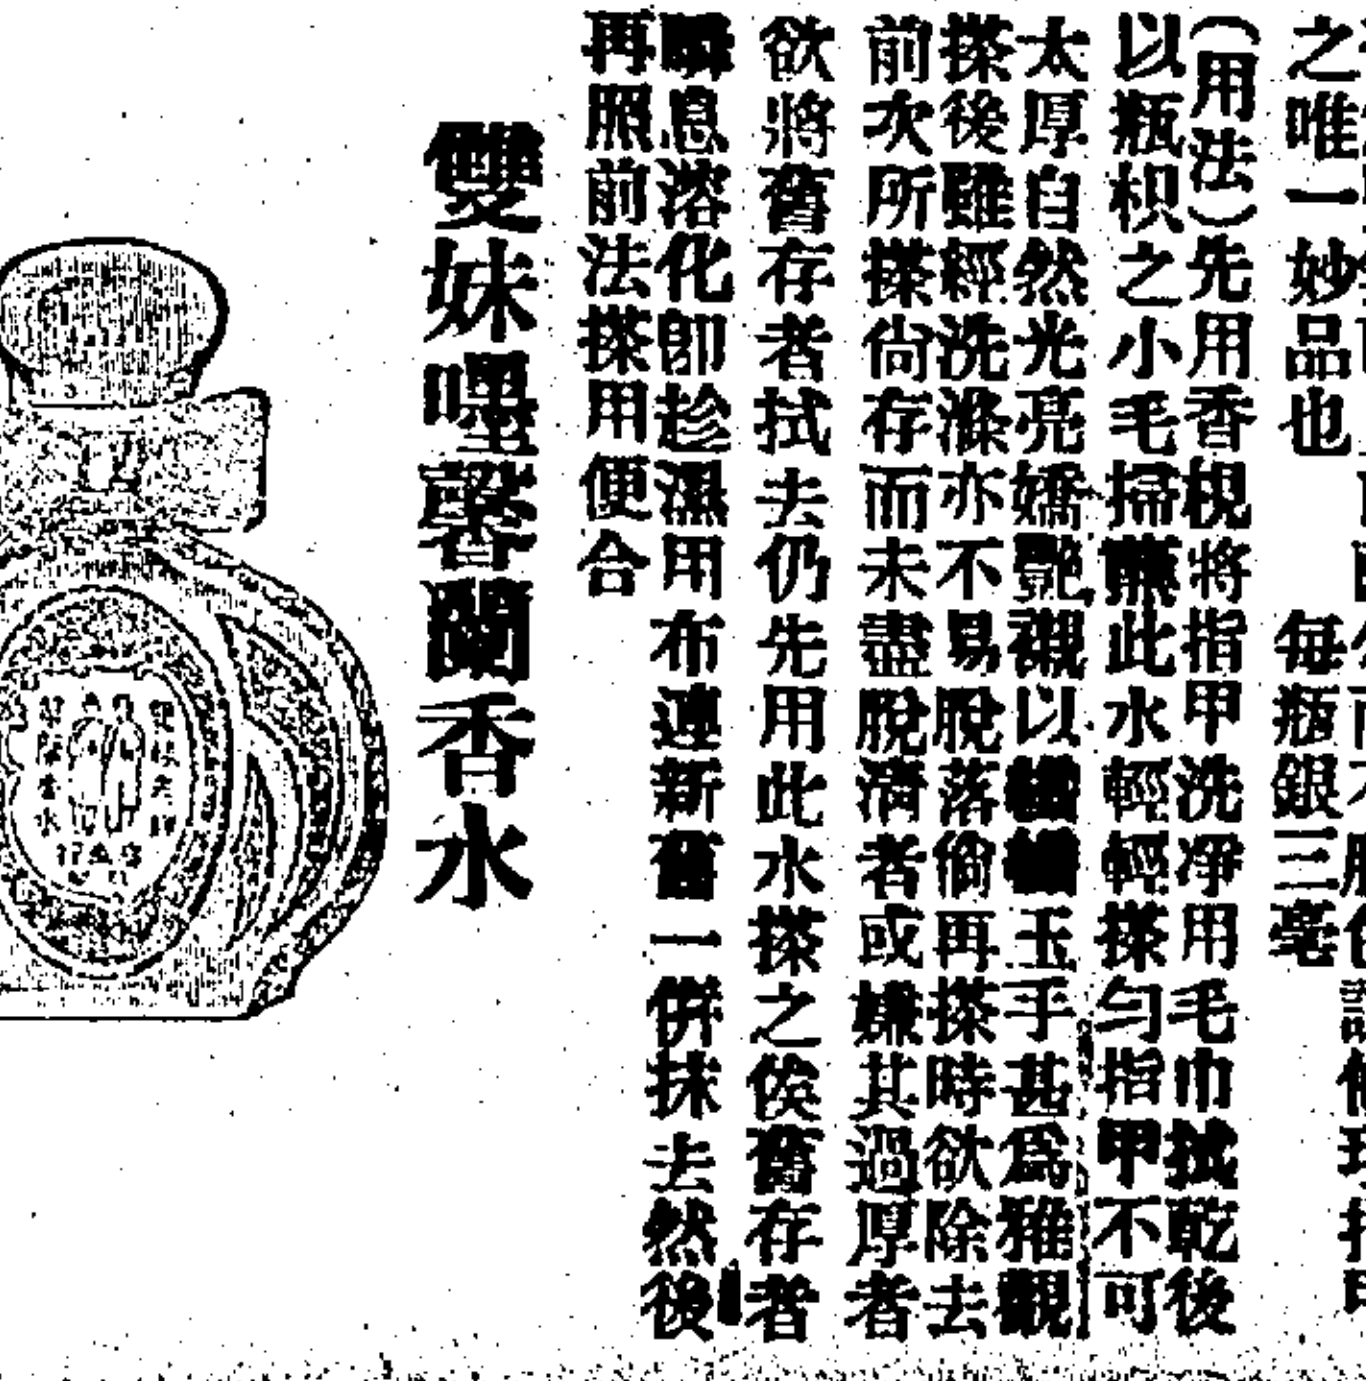 之唯一妙品也 每瓶銀三毫
(用法)先用香梘将指甲洗凈用毛巾拭乾後
以瓶枳之小毛掃蘸此水輕輕搽勻指甲不可
太厚自然光亮嬌艷襯以纖纖玉手甚爲雅觀
搽後雖經洗滌亦不易脫落倘再搽時欲除去
前次所搽尙存而未盡脫清者或嫌其過厚者
欲將舊存者拭去仍先用此水搽之俟舊存者
瞬息溶化卽趁濕用布連新舊一併抹去然後
再照前法搽用便合
雙妹嚜馨蘭香水